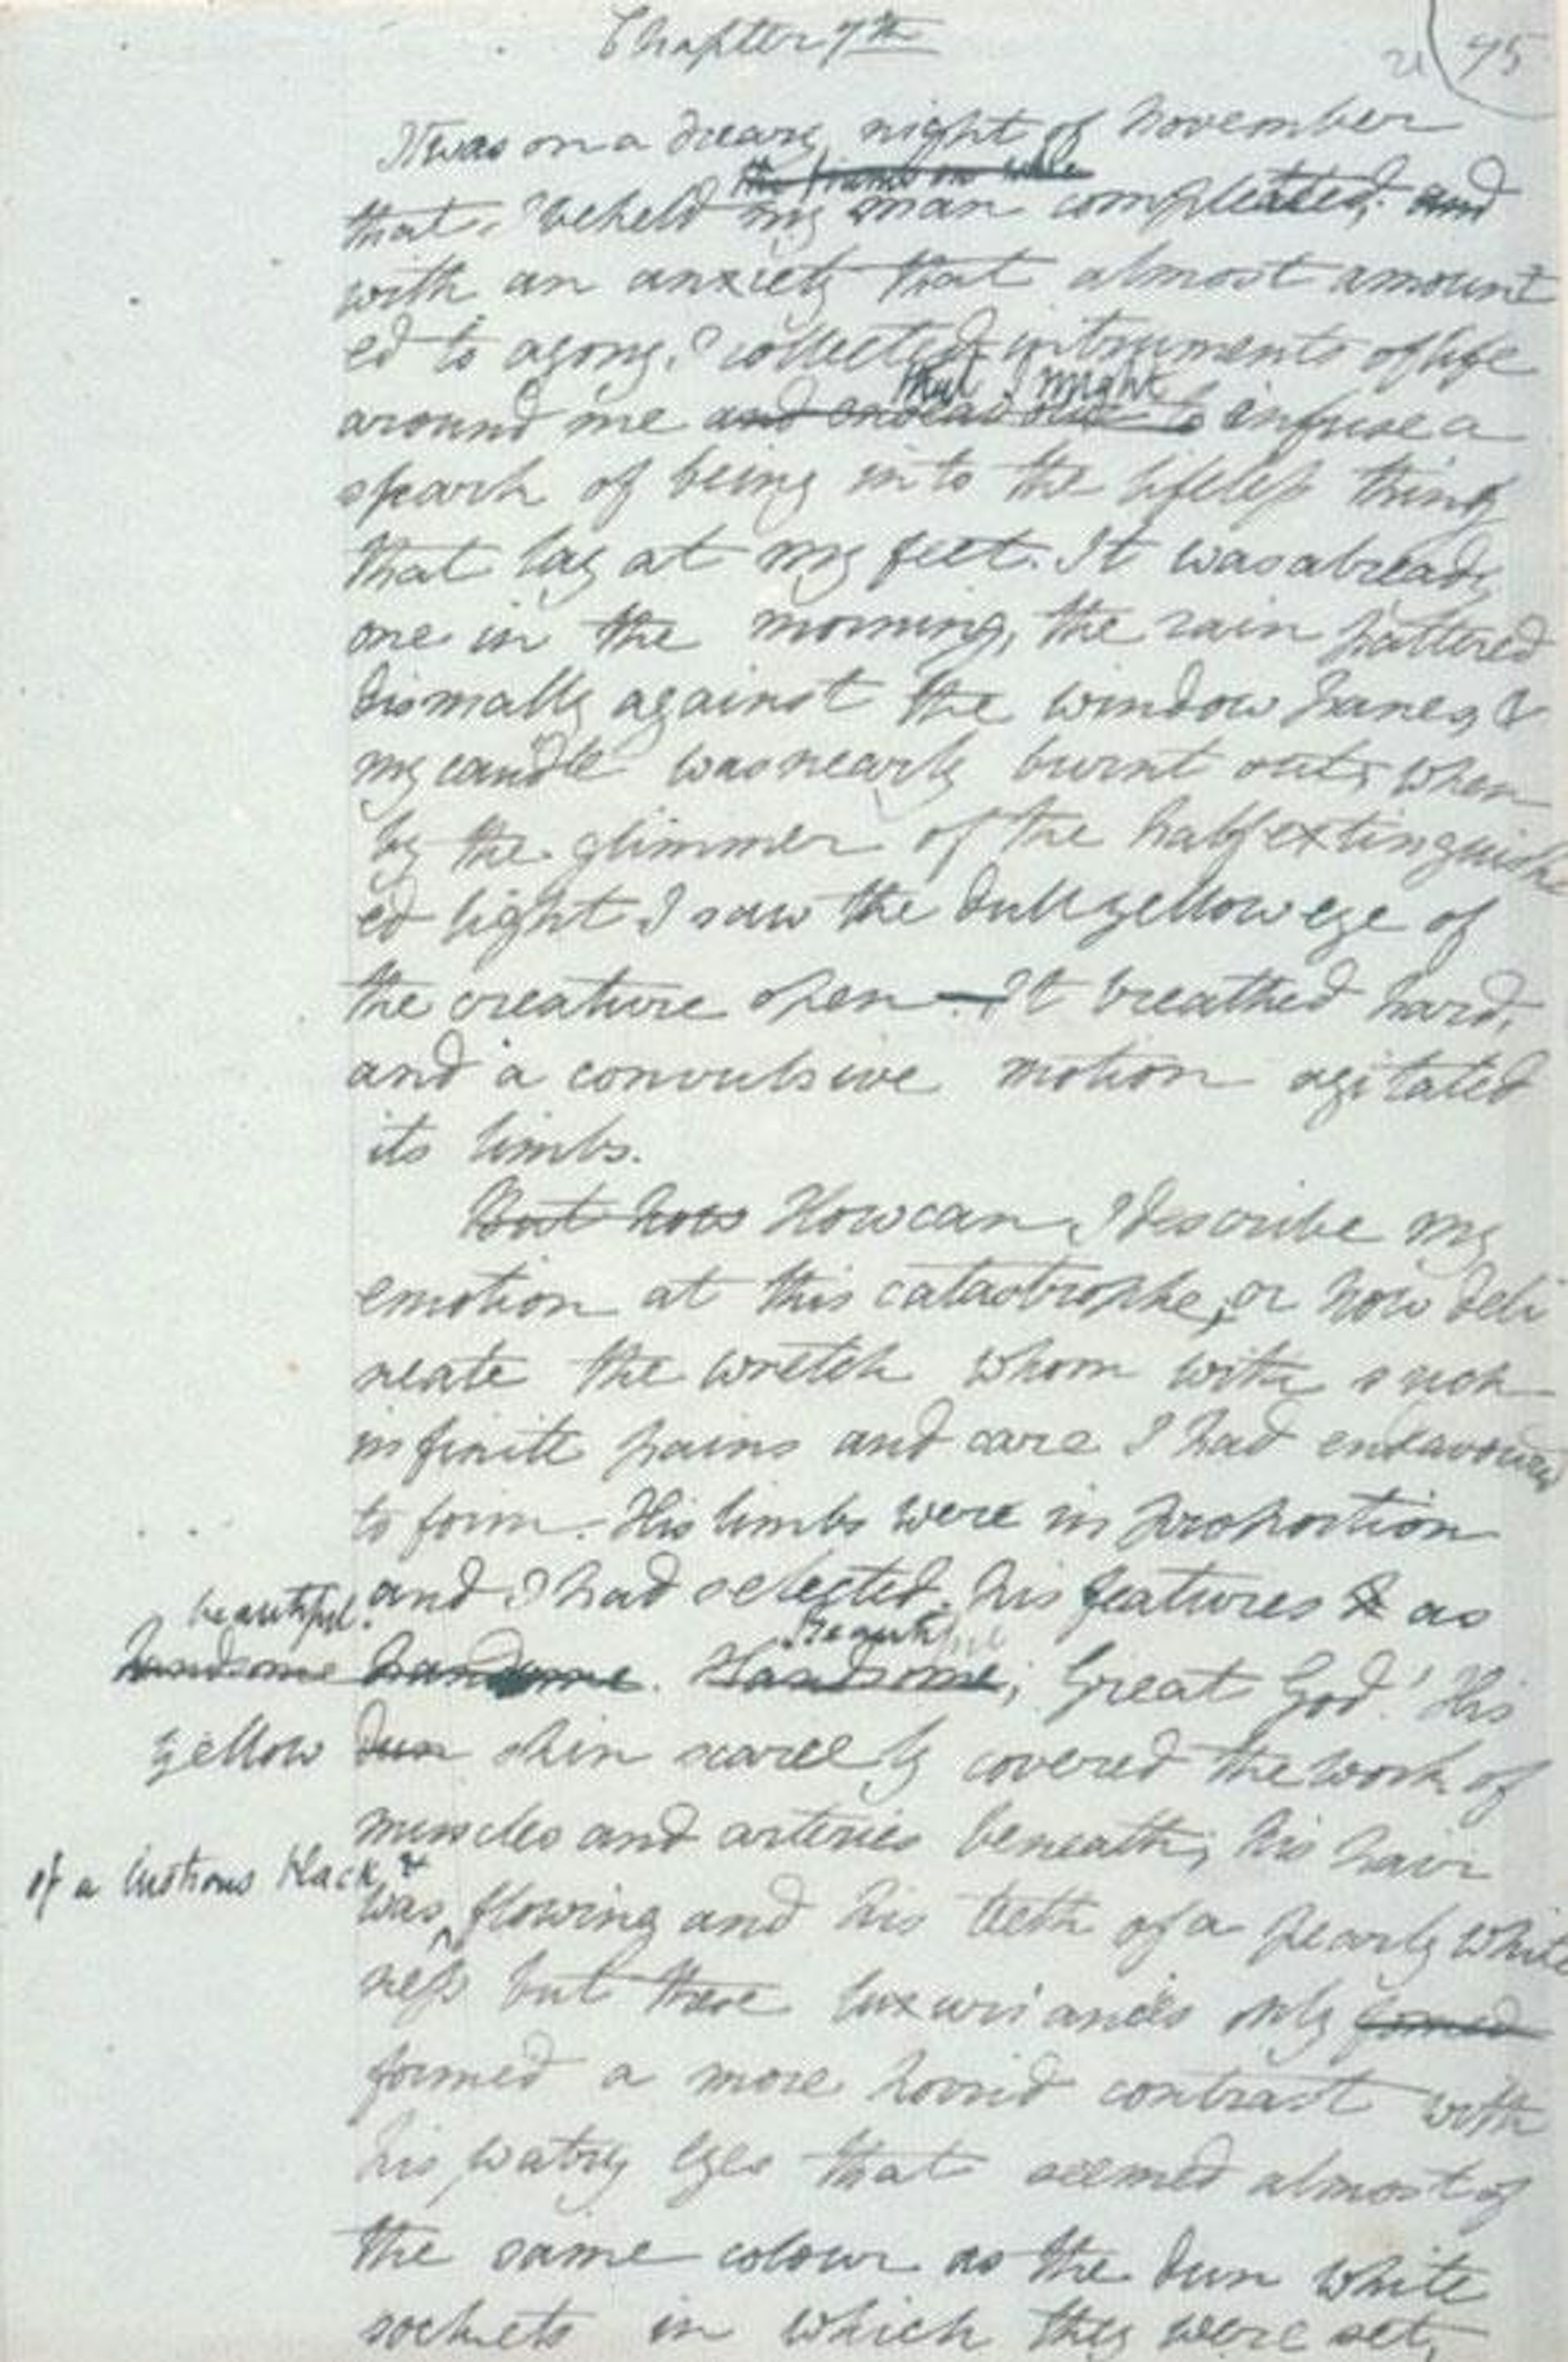 Chapter 7th
21 75
It was on a dreary night of November
the frame on whic
that I beheld my man compleated, and
with an anxiety that almost amount
ed to agony, I collected instruments of life
that I might
around me and endeavour to infuse a
spark of being into the lifeless thing
that lay at my feet. It was already
one in the morning, the rain pattered
dismally against the window panes, &
my candle was nearly burnt out, when
by the glimmer of the half extinguish
ed light I saw the dull yellow eye of
the creature open — It breathed hard,
and a convulsive motion agitated
its limbs.
But how How can I describe my
emotion at this catastrophe, or how deli
neate the wretch whom with such
infinite pains and care I had endeavoured
to form. His limbs were in proportion
and I had selected his features as
beautiful. Beautiful
handsome handsome. Handsome; Great God! His
yellow dun skin scarcely covered the work of
muscles and arteries beneath; his hair
of a lustrous black, &
was flowing and his teeth of a pearly white
ness but these luxuriances only formed
formed a more horrid contrast with
his watry eyes that seemed almost of
the same colour as the dun white
sockets in which they were set,